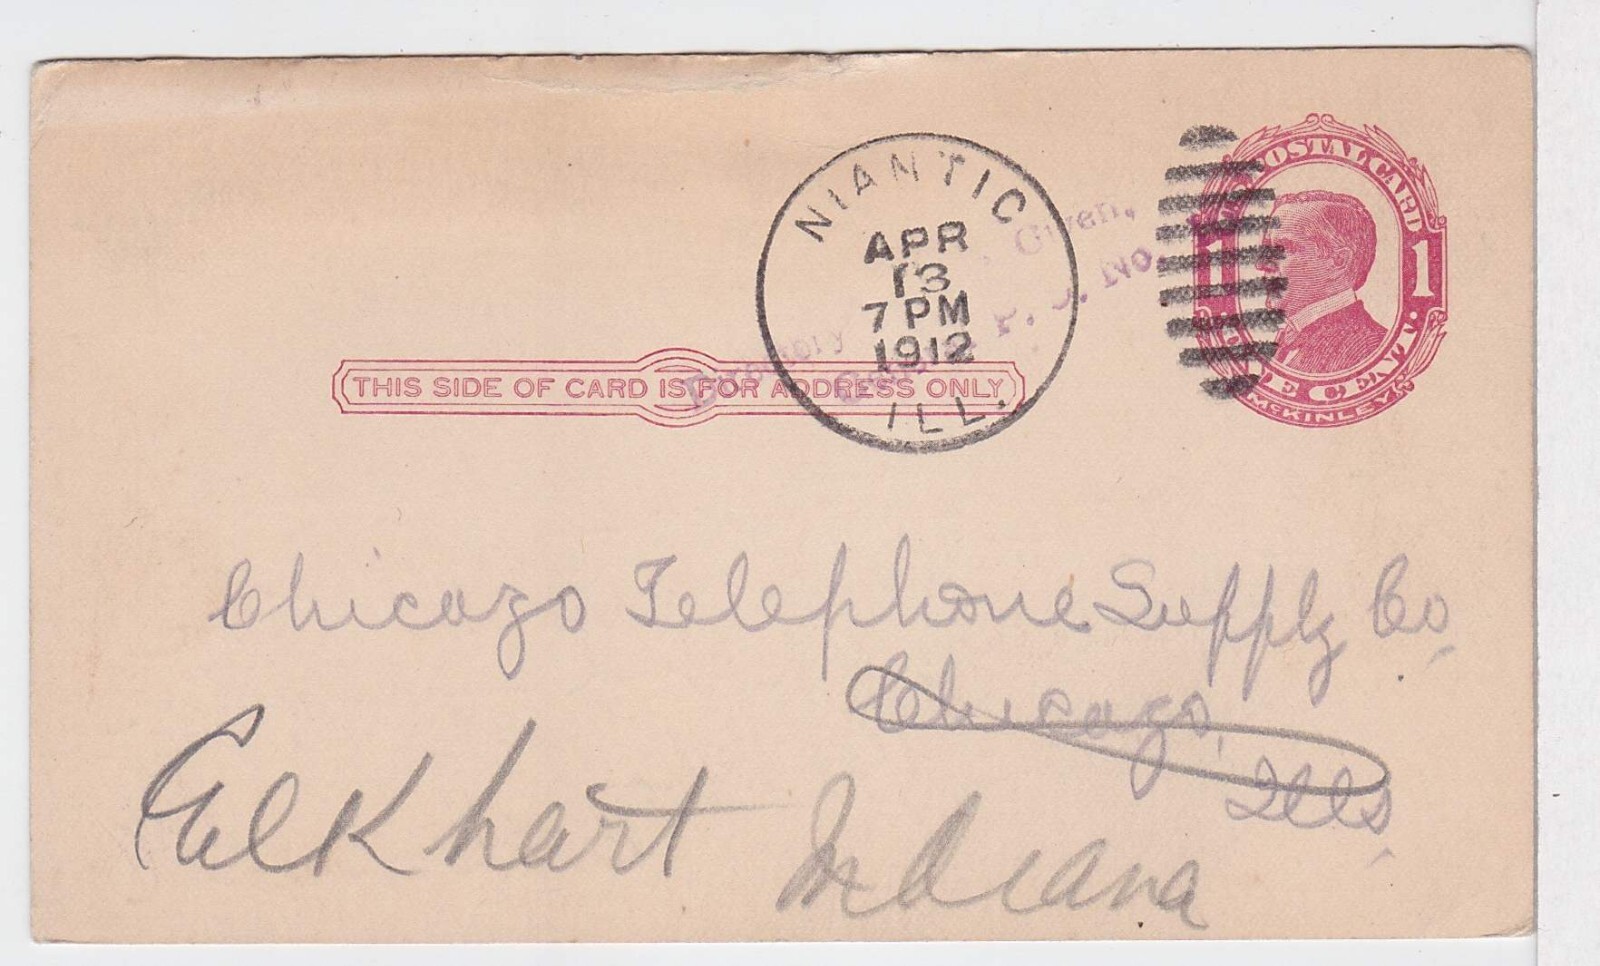 NIANTIC
APR
13
7 PM
1912
ILL.
POSTAL CARD
1 1
McKINLEY
Given,
Directory
P. O. No.
THIS SIDE OF CARD IS FOR ADDRESS ONLY
Chicago Telephone Supply Co
Chicago,
Ills
Elkhart Indiana